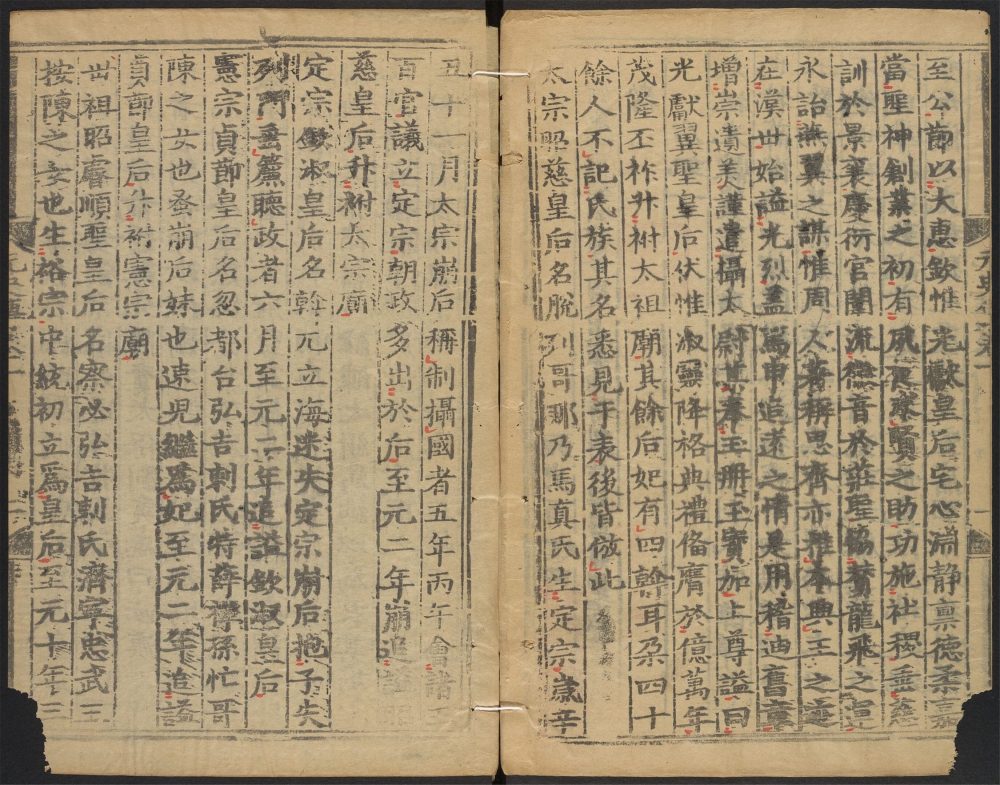 至公節以大惠欽惟光獻皇后宅心淵静禀德柔嘉
當聖神創業之初有夙夜求賢之助功施社稷垂慈
訓於景襄慶衍宮闈流徽音於莊聖協賛龍飛之運
永詒燕翼之謀惟周人著稱思齊亦推本典王之
在漢世始謚光烈盖篤申追遠之情是用稽迪舊章
增崇遺美謹遣攝太尉某奉玉册玉寶加上尊謚曰
光獻翼聖皇后伏惟淑靈降格典禮俻膺於億萬年
茂隆丕祚升祔太祖廟其餘后妃有四斡耳朶四十
餘人不記氏族其名悉見于表後皆倣此
太宗昭慈皇后名脫列哥那乃馬真氏生定宗歲辛
五十一月太宗崩后稱制攝國者五年丙午會諸王
百官議立定宗朝政多出於后至元二年崩追謚昭
慈皇后升祔太宗廟
定宗欽淑皇后名斡元立海迷失定宗崩后抱子失
列門垂簾聽政者六月至元二年追謚欽淑皇后
憲宗貞節皇后名忽都台弘吉剌氏特薛禪孫忙哥
陳之女也蚤崩后妹也速兒繼爲妃至元二年追謚
貞節皇后升祔憲宗廟
世祖昭睿順聖皇后名察必弘吉剌氏濟寧忠武王
按陳之女也生裕宗中統初立爲皇后至元十年三